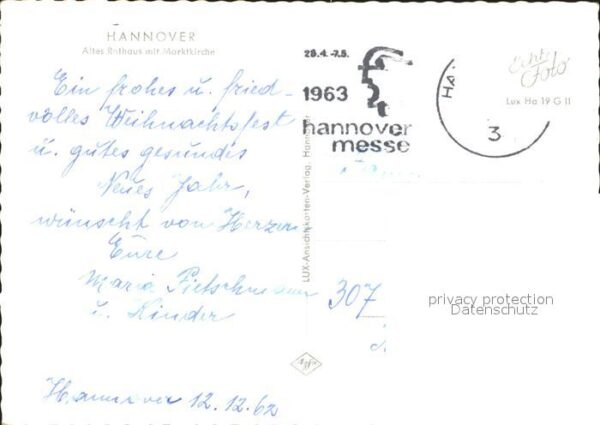 HANNOVER
Altes Rathaus mit Marktkirche
Ein frohes u. fried-
volles Weihnachtsfest
u. gutes gesundes
Neues Jahr,
wünscht von Herzen
Eure
Maria Pietschmann
u. Kinder
Hannover 12.12.62
28.4.-7.5.
1963
hannover
messe
Ha
3
Echt
Foto
Lux Ha 19 G 11
LUX-Ansichtskarten-Verlag, Hannover
307
privacy protection
Datenschutz
Agfa